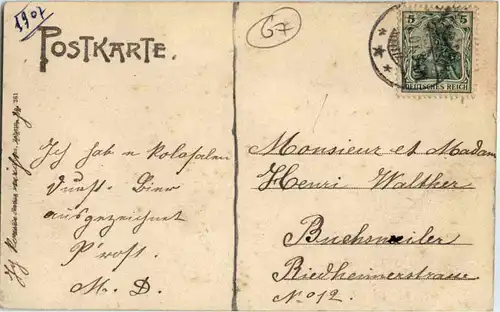 1907
67
POSTKARTE.
5 5
DEUTSCHES REICH
Ich hab n kolosalen
Durst. Bier
ausgezeichnet
Prost.
M. D.
Monsieur et Madam
Henri Walther
Buchsweiler
Riedheimerstrasse
No 12.
Ich komme